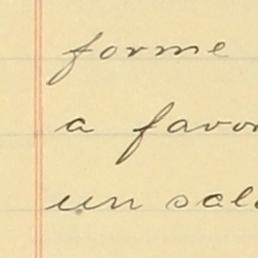 forme
a favor
un sal